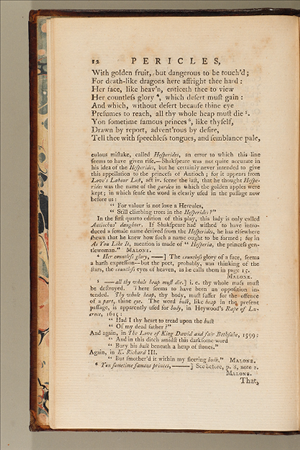 12 PERICLES,
With golden fruit, but dangerous to be touch'd;
For death-like dragons here affright thee hard:
Her face, like heav'n, enticeth thee to view
Her countless glory ⁴, which desert must gain:
And which, without desert because thine eye
Presumes to reach, all thy whole heap must die ⁵.
Yon sometime famous princes ⁶, like thyself,
Drawn by report, advent'rous by desire,
Tell thee with speechless tongues, and semblance pale,
eubout mistake, called Hesperides, an error to which this line
seems to have given rise,—Shakspeare was not quite accurate in
his idea of the Hesperides, but he certainly never intended to give
this appellation to the princess of Antioch; for it appears from
Love's Labour Lost, act iv. scene the last, that he thought Hespe-
rides was the name of the garden in which the golden apples were
kept; in which sense the word is clearly used in the passage now
before us:
" For valour is not love a Hercules,
" Still climbing trees in the Hesperides?"
In the first quarto edition of this play, this lady is only called
Antiochus' daughter. If Shakspeare had wished to have intro-
duced a female name derived from the Hesperides, he has elsewhere
shewn that he knew how such a name ought to be formed; for in
As You Like It, mention is made of " Hesperia, the princess gen-
tlewoman." MALONE.
⁴ Her countless glory, ——] The countless glory of a face, seems
a harsh expression—but the poet, probably, was thinking of the
stars, the countless eyes of heaven, as he calls them in page 15.
MALONE.
⁵ —all thy whole heap must die.] i. e. thy whole mass must
be destroyed. There seems to have been an opposition in-
tended. Thy whole heap, thy body, must suffer for the offence
of a part, thine eye. The word bulk, like heap in the present
passage, is apparently used for body, in Heywood's Rape of Lu-
crece, 1615:
" Had I thy heart to tread upon the bulk
" Of my dead father!"
And again, in The Love of King David and fair Bethsabe, 1599:
" And in this ditch amidst this darksome wood
" Bury his bulk beneath a heap of stones."
Again, in K. Richard III.
" But smother'd it within my panting bulk." MALONE.
⁶ Yon sometime famous princes, ——] See before, p. 8, note 2.
MALONE.
That,